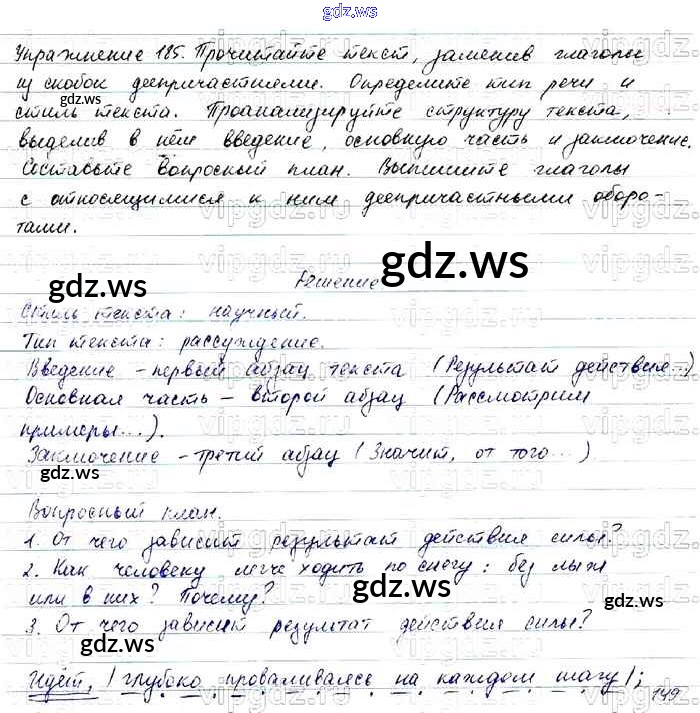 gdz.ws
Упражнение 185. Прочитайте текст, заменив глаголы
из скобок деепричастиями. Определите тип речи и
gdz.ws
стиль текста. Проанализируйте структуру текста,
выделив в нём введение, основную часть и заключение.
Составьте вопросный план. Выпишите глаголы
с относящимися к ним деепричастными оборо-
тами.
Решение
gdz.ws
gdz.ws
Стиль текста: научный.
Тип текста: рассуждение.
Введение - первый абзац текста (Результат действие...)
Основная часть - второй абзац (Рассмотрим
примеры...).
Заключение - третий абзац (Значит, от того...)
gdz.ws
Вопросный план.
1. От чего зависит результат действия силы?
2. Как человеку легче ходить по снегу: без лыж
или в них? Почему?
gdz.ws
gdz.ws
3. От чего зависит результат действия силы?
gdz.ws
Идёт, / глубоко проваливаясь на каждом шагу /;
149